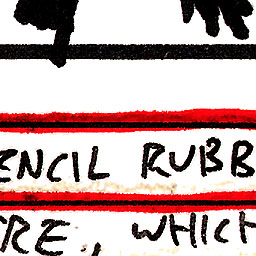 ENCIL RUBB
RE., WHICH